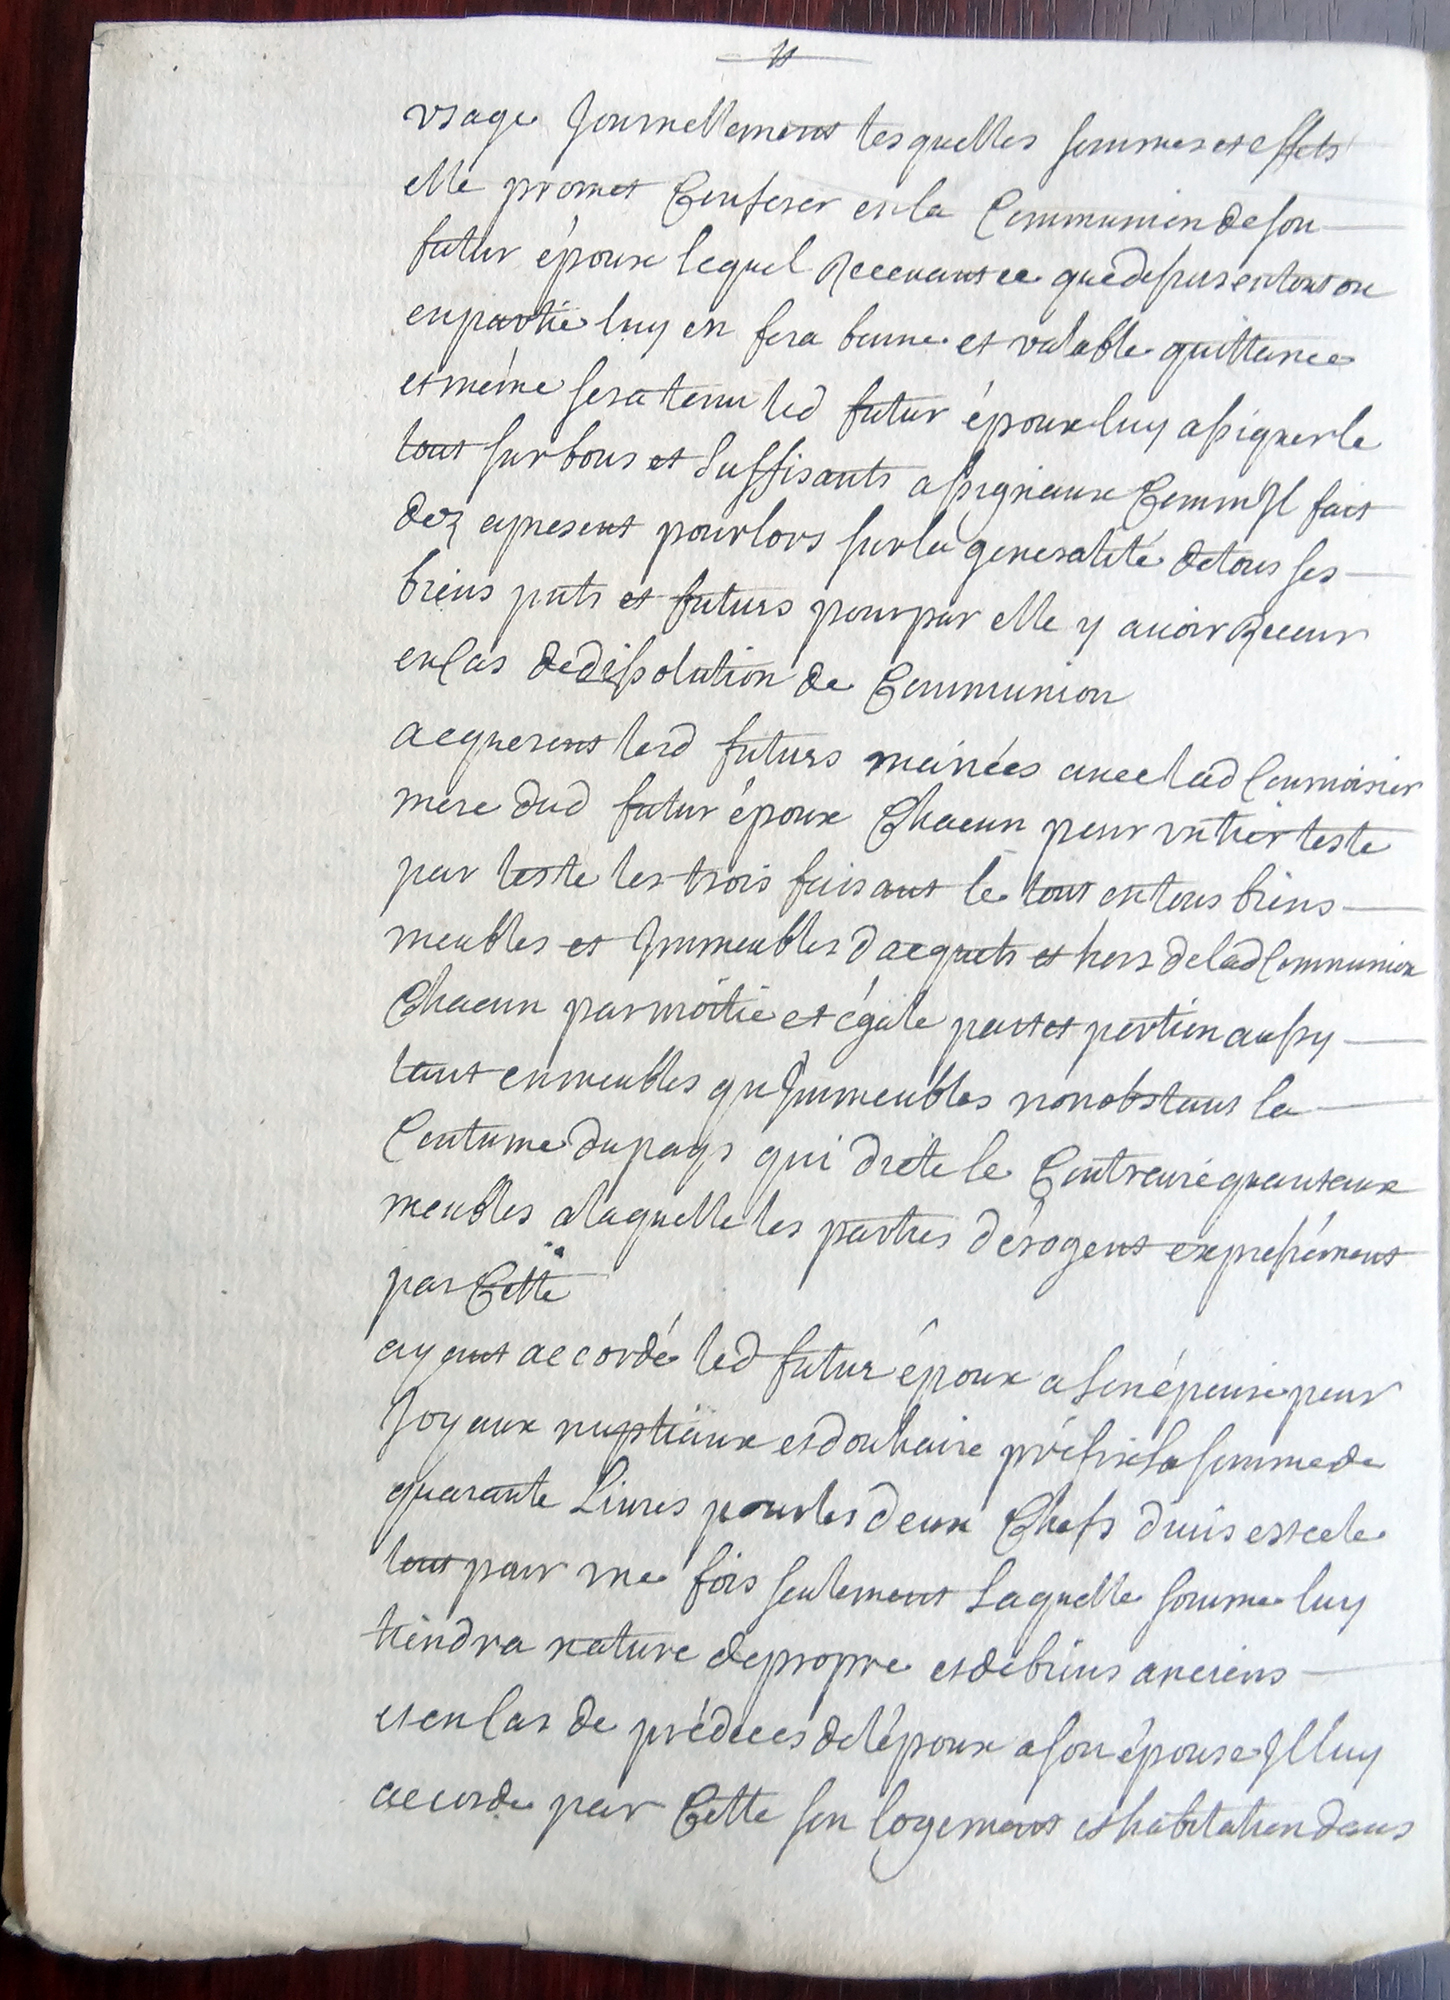 usage Journellement lesquelles sommes et effets
elle promet Conferer en la Communion de son
futur époux lequel Recevant ce que dessus en tout ou
en partie luy en fera bonne et valable quittance
et même sera tenu led futur époux luy assigner le
tout sur bons et suffisants assignaux Comm'Il fait
dez apresent pour lors sur la generalité de tous ses
biens pnts et futurs pour par elle y avoir Recour
en Cas de dissolution de Communion
acquerent lesd futurs mariées avec lad Cournoisier
mere dud futur époux Chacun pour un tier teste
par teste les trois faisant le tout en tous biens
meubles et Immeubles d'acquets et hors de lad Communion
Chacun par moitié et égale part et portion aussy
tant en meubles qu'Immeubles nonobstant la
Coutume du pays qui dicte le Contraire quant aux
meubles a laquelle les parties dérogent expressément
par Cette
ayant accordé led futur époux a son épouse pour
Joyaux nuptiaux et douhaire préfix la somme de
quarante Livres pour les deux Chefs d'avis et cele
tout pour une fois seulement Laquelle somme luy
tiendra nature de propre et de biens anciens
et en Cas de prédeces de l'époux a son épouse Il luy
accorde par Cette son logement et habitation dans